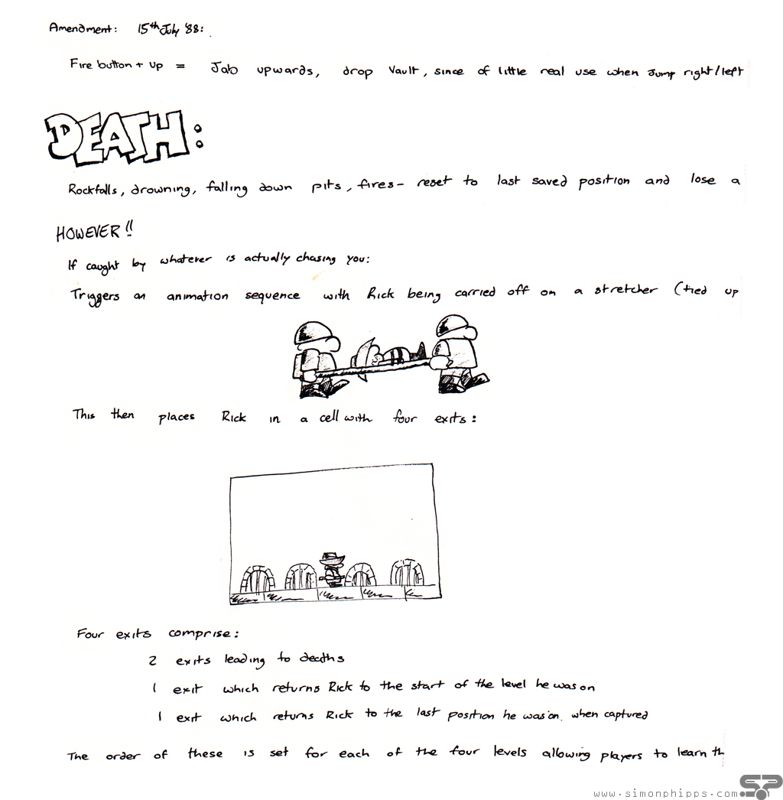 Amendment: 15th July '88:
Fire button + Up = Jab upwards, drop Vault, since of little real use when Jump right/left
DEATH:
Rockfalls, drowning, falling down pits, fires - reset to last saved position and lose a
HOWEVER!!
If caught by whatever is actually chasing you:
Triggers an animation sequence with Rick being carried off on a stretcher (tied up
This then places Rick in a cell with four exits:
Four exits comprise:
2 exits leading to deaths
1 exit which returns Rick to the start of the level he was on
1 exit which returns Rick to the last position he was on when captured
The order of these is set for each of the four levels allowing players to learn th
www.simonphipps.com